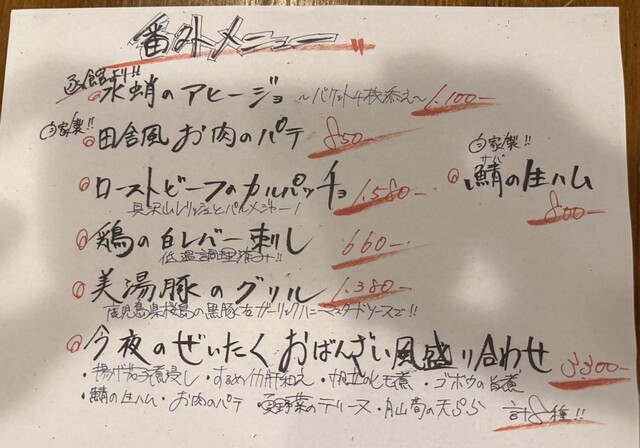 番外メニュー
函館より!!
水蛸のアヒージョ ～バケット4枚添え～ 1.100-
自家製!!
田舎風お肉のパテ 850-
ローストビーフのカルパッチョ 1.580-
具沢山レリッシュとパルメジャーノ
自家製!!
サバ
鯖の生ハム
800-
鶏の白レバー刺し 660-
低温調理済み!!
美湯豚のグリル 1.380-
鹿児島県桜島の黒豚を ガーリックハニーマスタードソースで!!
今夜のぜいたくおばんざい風盛り合わせ 3,300-
・揚げ茄子煮浸し・するめイカ肝和え・帆立・ゴボウの旨煮
・鯖の生ハム・お肉のパテ・夏野菜のテリーヌ・月山筍の天ぷら 計8種!!